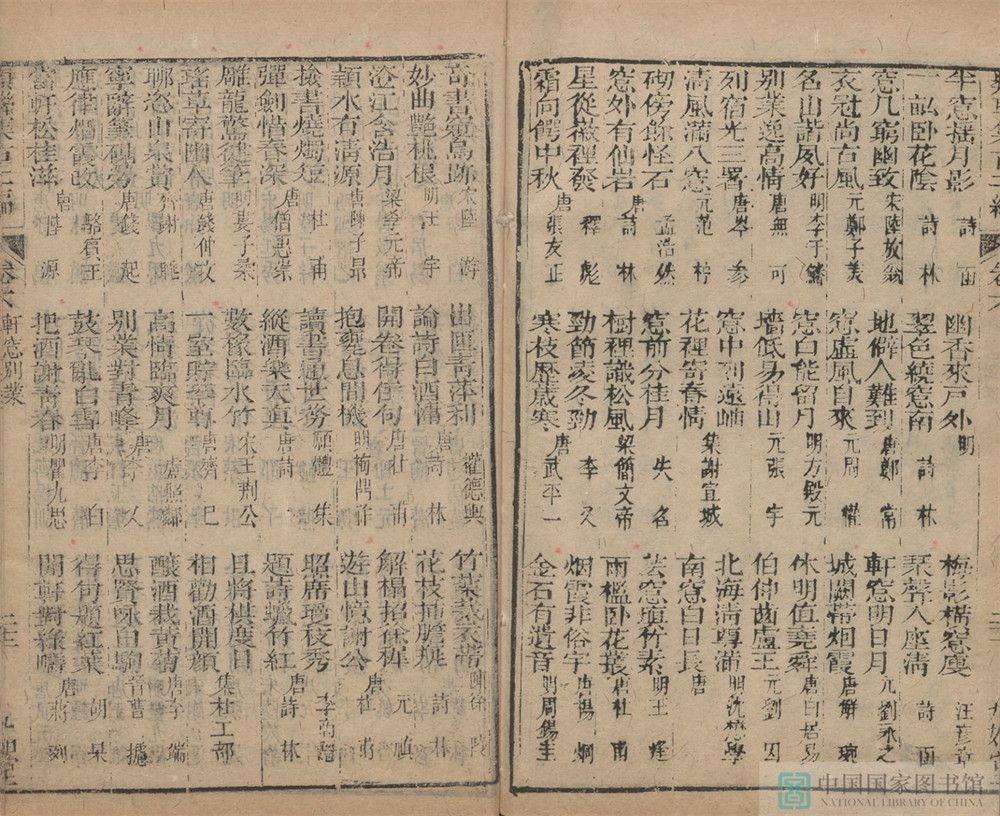 半窓搖月影 詩函 幽香來戸外 明 梅影橫窓 汪彦章
一 卧花陰 詩林 翠色繞窓南 詩林 琹聲入座清 詩函
窓几窮幽致 宋陸放翁 地僻人難到 唐鄭常 軒窓明日月 元劉永之
衣冠尚古風 元鄭子美 窓虛風自來 元周權 城闕帶烟霞 唐解琬
名山諧夙好 明李于鱗 窓白能留月 明方毅元 休明值堯舜 唐白居易
別業逸高情 唐無可 墻低易見山 元張宇 伯仲齒盧王 元劉因
列宿光三署 唐岑參 窓中列遠岫 北海清尊滿 明沈懋學
清風滿八窓 元范梈 花裡寄春情 集謝宣城 南窓白日長 唐
砌傍餘怪石 孟浩然 窓前分桂月 失名 芸窓填竹素 明王烽
窓外有仙岩 唐詩林 樹裡識松風 梁簡文帝 雨檻卧花叢 唐杜甫
星從徽裡發 釋彪 勁節凌冬勁 李乂 烟霞非俗宇 唐楊炯
霜向鍔中秋 唐張友正 寒枝歷歲寒 唐武平一 金石有遺音 明周錫圭
奇書窺鳥跡 宋陸游 出匣青萍利 權德輿 竹葉裁衣帶 陳徐陵
妙曲艷桃根 明王宇 論詩白酒 唐詩林 花枝揷膽瓶 詩林
滄江含浩月 梁孝元帝 開卷得佳句 唐杜甫 解榻招徐穉 元稹
潁水有清源 唐陳子昻 抱甕息閒機 明梅鼎祚 遊山憶謝公 唐杜甫
撿書燒燭短 杜甫 讀書通世務 顧體集 照席瓊枝秀 李商隱
彈劍惜春深 唐伯思崇 縱酒樂天真 唐詩林 題詩蠟竹紅 唐詩林
雕龍驚徒筆 明婁子柔 數椽臨水竹 宋王荆公 且將棋度日 集杜工部
瑤草寄幽人 唐錢仲文 一室貯琴尊 唐齊己 相勸酒開顔
聊洽山泉賞 齊謝朓 高情臨爽月 盧照鄰 釀酒栽黃菊 唐李端
寧辭筆硯勞 唐錢起 別業對青峰 唐李乂 思賢咏白駒 晉曹攄
應律烟霞改 駱賓王 鼓琹亂白雪 唐李白 得句題紅葉 胡杲
當軒松桂滋 唐 源 把酒謝青春 明瞿九思 開軒對綠疇 唐蔣冽
卷六 軒窓別業 二十
中国国家图书馆
NATIONAL LIBRARY OF CHINA